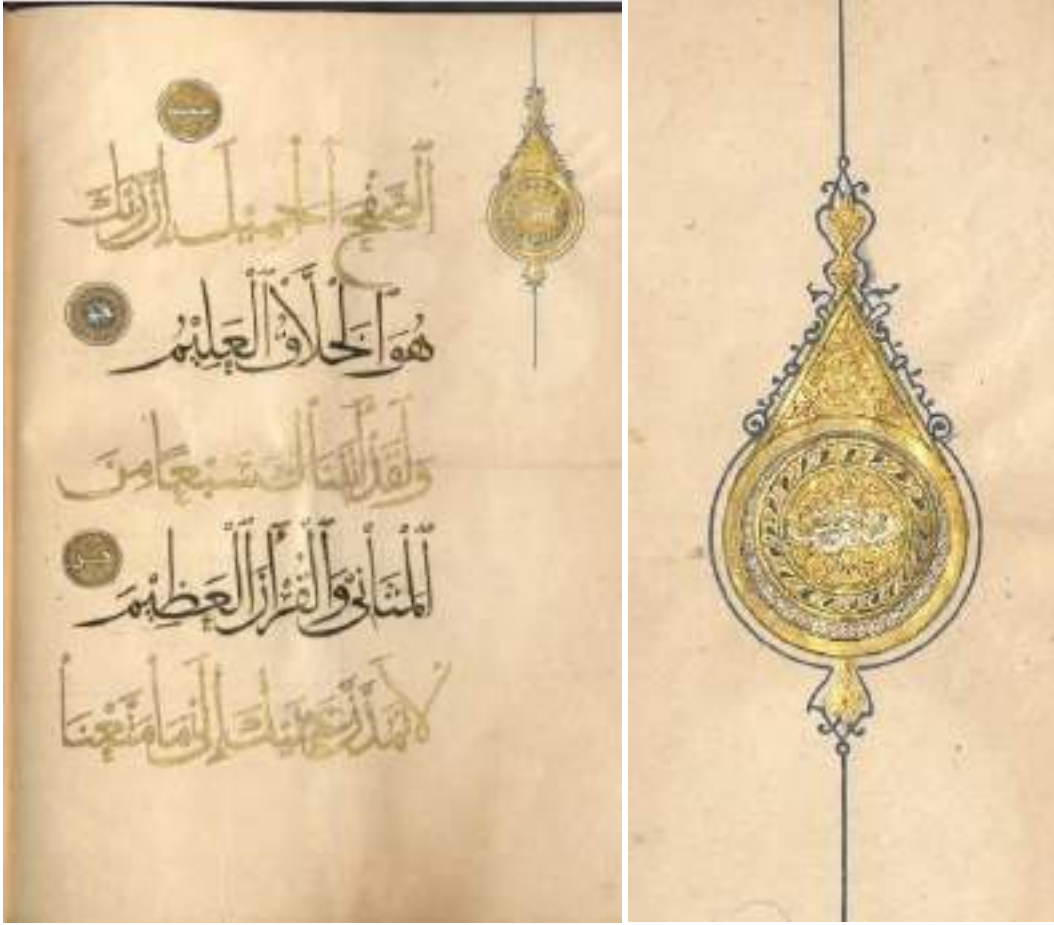 الصَّفْحَ الْجَمِيلَ إِنَّ رَبَّكَ
هُوَ الْخَلَّاقُ الْعَلِيْمُ
وَلَقَدْ اٰتَيْنَاكَ سَبْعًا مِنَ
الْمَثَانِيْ وَالْقُرْاٰنَ الْعَظِيْمَ
لَا تَمُدَّنَّ عَيْنَيْكَ إِلٰى مَا مَتَّعْنَا